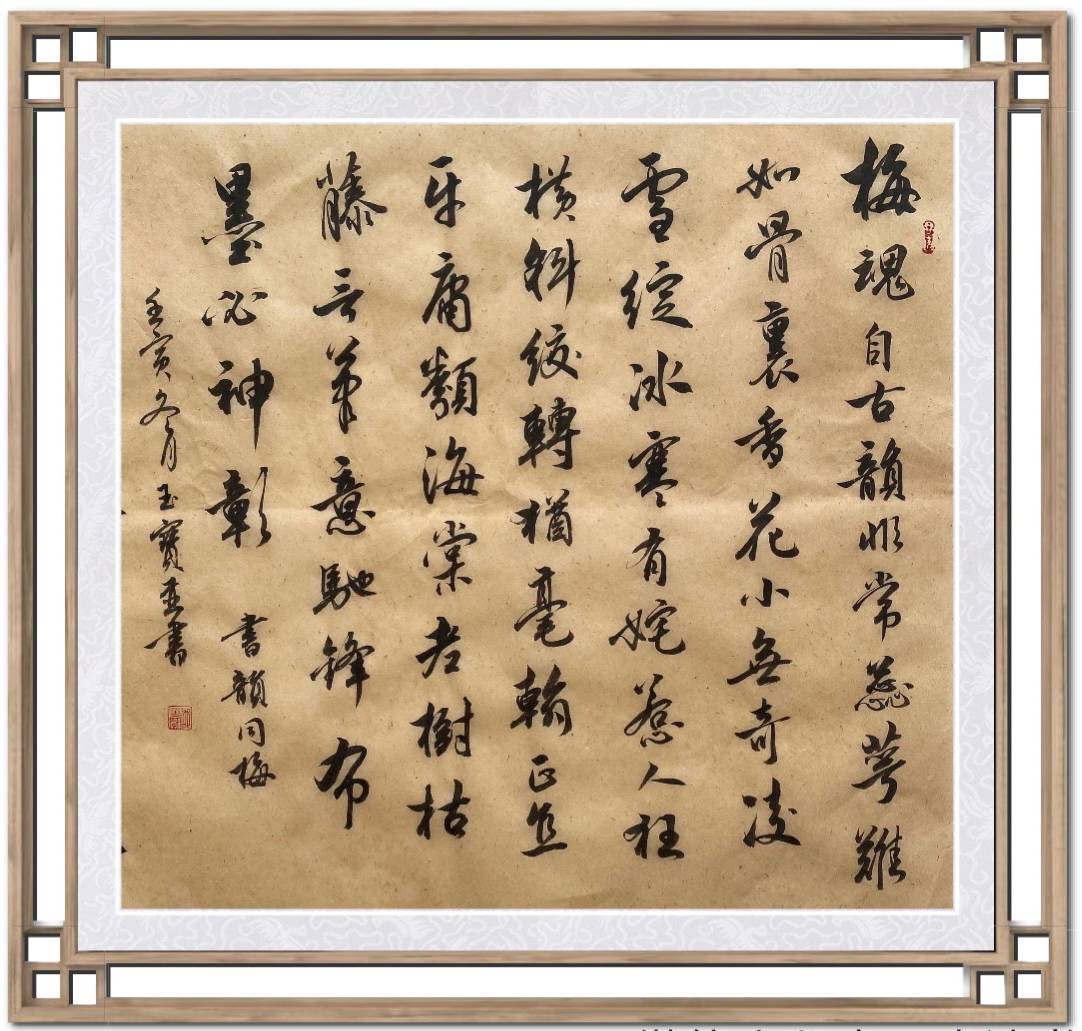 梅魂自古韻非常蕊萼難
如骨裏香花小無奇凌
雪綻冰寒有姹惹人狂
橫斜絞轉猶毫翰正直
平庸類海棠老樹枯
藤言筆意馳鋒布
墨必神彰
書韻同梅
壬寅冬月玉寶並書